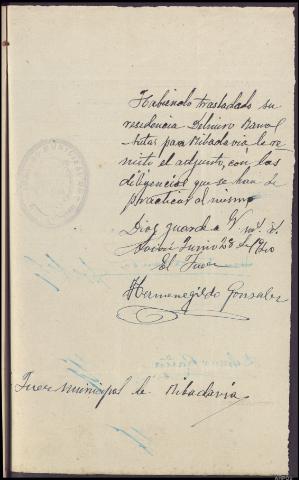 Habiendo trasladado su
residencia Delmiro
para Ribadavia, le re-
mito el adjunto, con las
diligencias que se han de
practicar al mismo
Dios guarde a V. ms. as.
Junio 28 de
El Juez
Hermenegildo Gonzalez
Juez municipal de Ribadavia